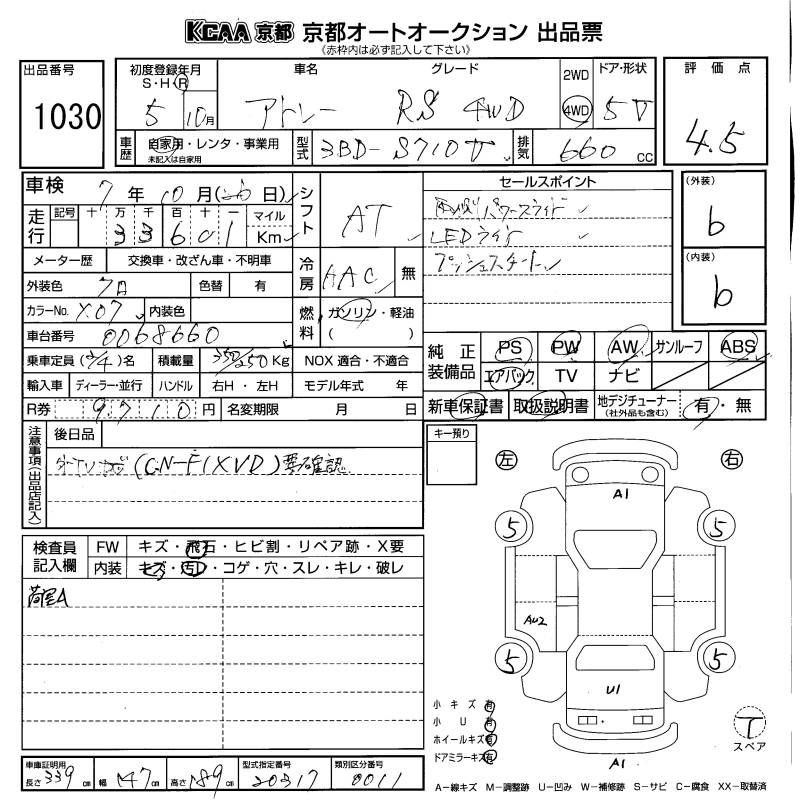 KCAA 京都 京都オートオークション 出品票
(赤枠内は必ず記入して下さい)
出品番号
1030
初度登録年月
S・H・R
5 10月
車名
アトレー
グレード
RS 4WD
2WD
4WD
ドア・形状
5V
評価点
4.5
車歴
自家用・レンタ・事業用
未記入は自家用
型式
3BD-S710V
排気
660 CC
車検
7年10月(26日)
走行
記号 十 万 千 百 十 一
33601
マイル
Km
シフト
AT
メーター歴
交換車・改ざん車・不明車
外装色
クロ
色替 有
カラーNo.
X07
内装色
車台番号
0068660
冷房
AAC
無
燃料
ガソリン・軽油
( )
乗車定員 (2/4)名
積載量
350/250 Kg
NOX 適合・不適合
輸入車
ディーラー・並行
ハンドル
右H・左H
モデル年式 年
R券
9710円
名変期限 月 日
セールスポイント
両側パワースライド
LEDライト
プッシュスタート
(外装)
b
(内装)
b
純正装備品
PS PW AW サンルーフ ABS
エアバック TV ナビ
新車保証書 取扱説明書
地デジチューナー
(社外品も含む)
有・無
注意事項(出品店記入)
後日品
(CN-F1XVD)要確認
キー預り
検査員記入欄
FW
キズ・飛石・ヒビ割・リペア跡・X要
内装
キズ・汚れ・コゲ・穴・スレ・キレ・破レ
荷室A
左
右
A1
5
5
AU2
5
5
U1
A1
小キズ 有
小U 有
ホイールキズ 有
ドアミラーキズ 有
T
スペア
車庫証明用
長さ 339 cm
幅 147 cm
高さ 189 cm
型式指定番号
20317
類別区分番号
0011
A-線キズ M-調整跡 U-凹み W-補修跡 S-サビ C-腐食 XX-取替済